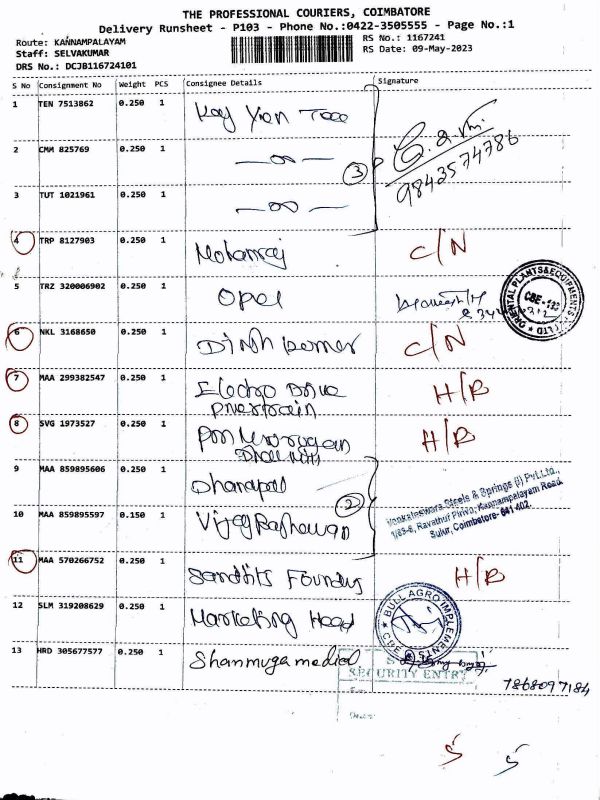 THE PROFESSIONAL COURIERS, COIMBATORE
Delivery Runsheet - P103 - Phone No.:0422-3505555 - Page No.:1
Route: KANNAMPALAYAM
RS No.: 1167241
Staff: SELVAKUMAR
RS Date: 09-May-2023
DRS No.: DCJB116724101
S No Consignment No Weight PCS Consignee Details Signature
1 TEN 7513862 0.250 1 Kay Yien Tex
2 CMM 825769 0.250 1
3
9843574786
3 TUT 1021961 0.250 1
4 TRP 8127903 0.250 1 Mohanraj C/N
5 TRZ 320006902 0.250 1 Opel
ORIENTAL PLANTS&EQUIPMENTS
6 NKL 3168650 0.250 1 Dinh kumar C/N
7 MAA 299382547 0.250 1 Electro Drive H/B
8 SVG 1973527 0.250 1 H/B
9 MAA 859895606 0.250 1 Dhanapal
2
Venkateswara Steels & Springs (I) Pvt.Ltd.,
1/83-6, Ravathur Pirivu, Kannampalayam Road,
Sulur, Coimbatore- 641 402.
10 MAA 859895597 0.150 1 Vijay Raghavan
11 MAA 570266752 0.250 1 H/B
12 SLM 319208629 0.250 1 Marketing Head
BULL AGRO IMPLEMENTS
CBE
13 HRD 305677577 0.250 1 Shanmuga medical
SECURITY ENTRY
7868097184
5 5